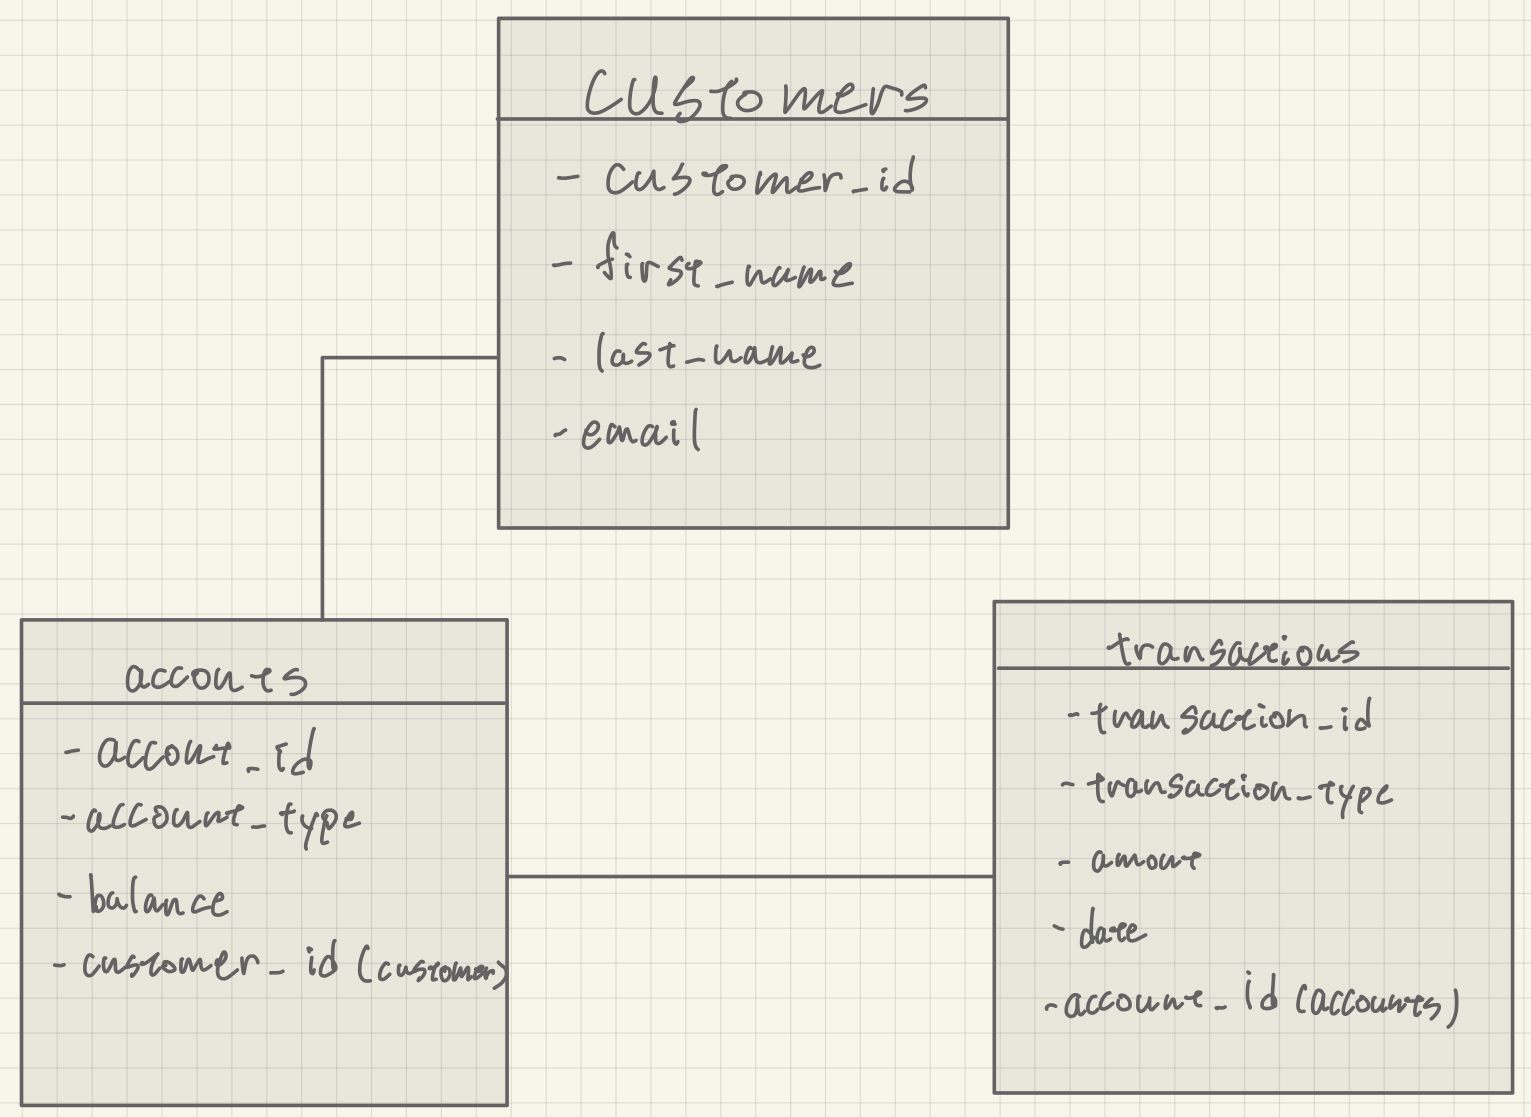 Customers
- customer_id
- first_name
- last_name
- email
accounts
- account_id
- account_type
- balance
- customer_id (customer)
transactions
- transaction_id
- transaction_type
- amount
- date
- account_id (accounts)